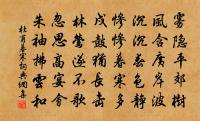 霧隱平郊樹
風含廣岸波
沉沉春色靜
慘慘暮寒多
戍鼓猶長擊
林鶯遂不歌
忽思高宴會
朱袖拂雲和
杜甫暮寒詞典網